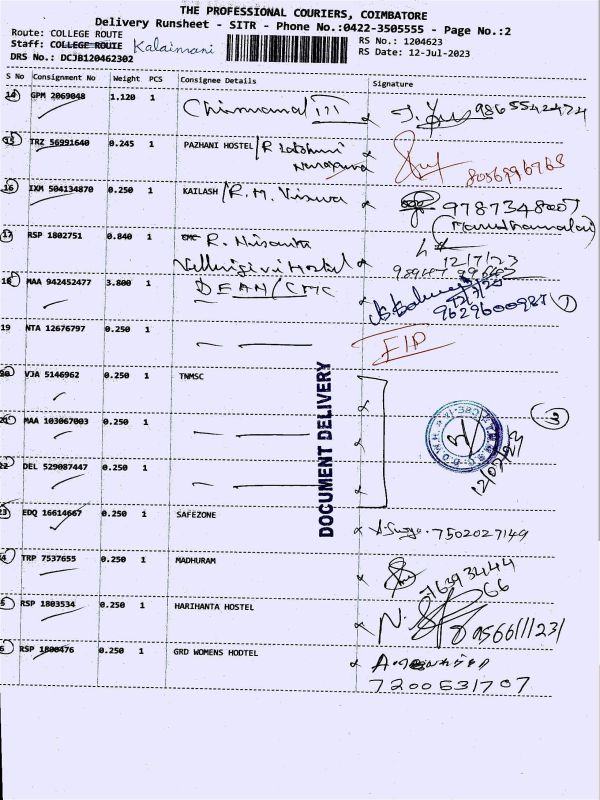 THE PROFESSIONAL COURIERS, COIMBATORE
Delivery Runsheet - SITR - Phone No.:0422-3505555 - Page No.:2
Route: COLLEGE ROUTE
Staff: COLLEGE ROUTE Kalaimani
RS No.: 1204623
DRS No.: DCJB120462302
RS Date: 12-Jul-2023
S No Consignment No Weight PCS Consignee Details Signature
14 GPM 2069048 1.120 1
15 TRZ 56991640 0.245 1 PAZHANI HOSTEL/R
8056996768
16 IXM 504134870 0.250 1 KAILASH/R.M.
9787348007
17 RSP 1802751 0.840 1 CMC R.
Hostel 12/7/23
18 MAA 942452477 3.800 1 DEAN/CMC
12/7/23
19 NTA 12676797 0.250 1
20 VJA 5146962 0.250 1 TNMSC
21 MAA 103067003 0.250 1
3
22 DEL 529087447 0.250 1
12/07/23
DOCUMENT DELIVERY
23 EDQ 16614667 0.250 1 SAFEZONE 7502027149
24 TRP 7537655 0.250 1 MADHURAM
25 RSP 1803534 0.250 1 HARIHANTA HOSTEL
26 RSP 1800476 0.250 1 GRD WOMENS HODTEL
7200531707